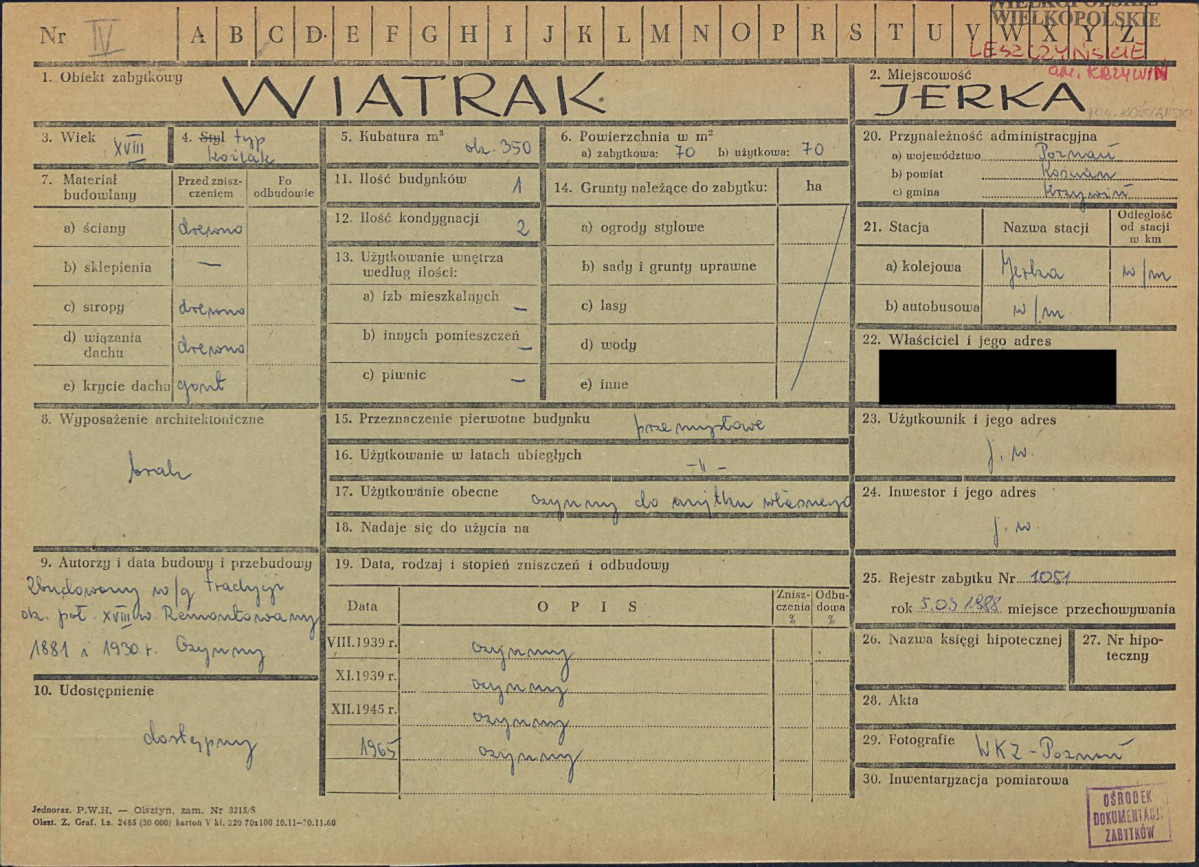 Nr IV A B C D E F G H I J K L M N O P R S T U V W X Y Z
WIELKOPOLSKIE
LESZCZYŃSKIE
gm. KRZYWIŃ
1. Obiekt zabytkowy
WIATRAK
2. Miejscowość
JERKA
3. Wiek XVIII
4. Styl typ
koźlak
5. Kubatura m³ ok. 350
6. Powierzchnia w m²
a) zabytkowa: 70 b) użytkowa: 70
7. Materiał budowlany
Przed zniszczeniem
Po odbudowie
a) ściany drewno
b) sklepienia —
c) stropy drewno
d) wiązania dachu drewno
e) krycie dachu gont
8. Wyposażenie architektoniczne
brak
9. Autorzy i data budowy i przebudowy
Zbudowany w/g tradycji
ok. poł. XVIII w. Remontowany
1881 i 1930 r. Czynny
10. Udostępnienie
dostępny
11. Ilość budynków 1
12. Ilość kondygnacji 2
13. Użytkowanie wnętrza
według ilości:
a) izb mieszkalnych —
b) innych pomieszczeń —
c) piwnic —
14. Grunty należące do zabytku: ha
a) ogrody stylowe
b) sady i grunty uprawne
c) lasy
d) wody
e) inne
15. Przeznaczenie pierwotne budynku przemysłowe
16. Użytkowanie w latach ubiegłych -"-
17. Użytkowanie obecne czynny do użytku własnego
18. Nadaje się do użycia na
19. Data, rodzaj i stopień zniszczeń i odbudowy
Data OPIS Zniszczenia % Odbudowa %
VIII.1939 r. czynny
XI.1939 r. czynny
XII.1945 r. czynny
1965 czynny
20. Przynależność administracyjna
a) województwo Poznań
b) powiat Kościan
c) gmina Krzywiń
21. Stacja Nazwa stacji Odległość od stacji w km
a) kolejowa Jerka w/m
b) autobusowa w/m.
22. Właściciel i jego adres
23. Użytkownik i jego adres
j. w.
24. Inwestor i jego adres
j. w.
25. Rejestr zabytku Nr 1051
rok 5.03 1988 miejsce przechowywania
26. Nazwa księgi hipotecznej
27. Nr hipoteczny
28. Akta
29. Fotografie WKZ-Poznań
30. Inwentaryzacja pomiarowa
OŚRODEK
DOKUMENTACJI
ZABYTKÓW
Jednoraz. P.W.H. — Olsztyn, zam. Nr 3215/S
Olszt. Z. Graf. Lz. 2485 (30 000) karton V kl. 220 70x100 10.11—30.11.60